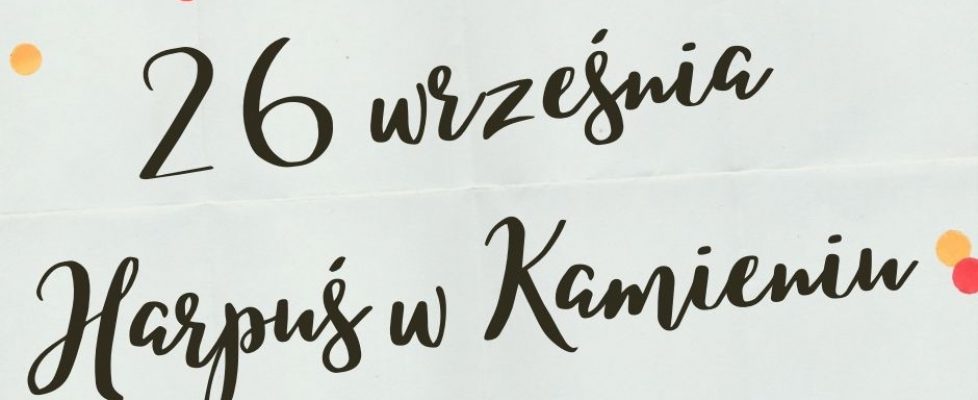 26 września
Harpuś w Kamieniu